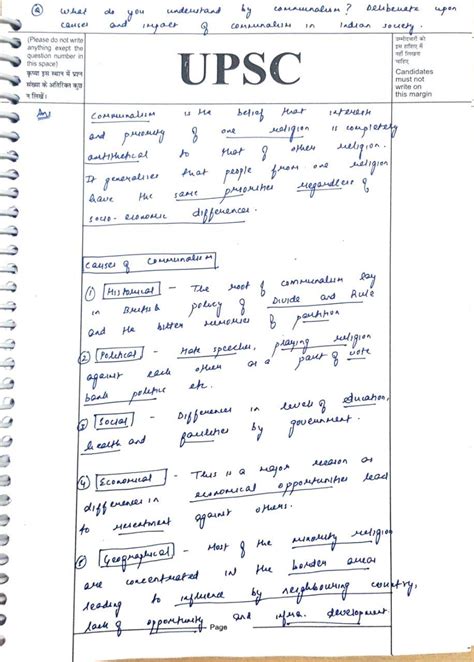 Q What do you understand by communalism? Deliberate upon
causes and impact of communalism in Indian society.
(Please do not write
anything exept the
question number in
this space)
कृपया इस स्थान में प्रश्न
संख्या के अतिरिक्त कुछ
न लिखें।
UPSC
उम्मीदवारों को
इस हाशिए में
नहीं लिखना
चाहिए
Candidates
must not
write on
this margin
Ans
Communalism is the belief that interest
and priority of one religion is completely
antithetical to that of other religion.
It generalises that people from one religion
have the same priorities regardless of
socio-economic differences.
Causes of Communalism
① Historical - The root of communalism lay
in British policy of Divide and Rule
and the bitter memories of partition
② Political - Hate speeches, praying religion
against each other as a part of vote
bank politic etc.
③ Social - Differences in levels of education,
health and facilities by government.
④ Economical - This is a major reason as
differences in economical opportunities lead
to resentment against others.
⑤ Geographical - Most of the minority religion
are concentrated in the border areas
leading to influence by neighbouring country,
lack of opportunity and infra. development
Page